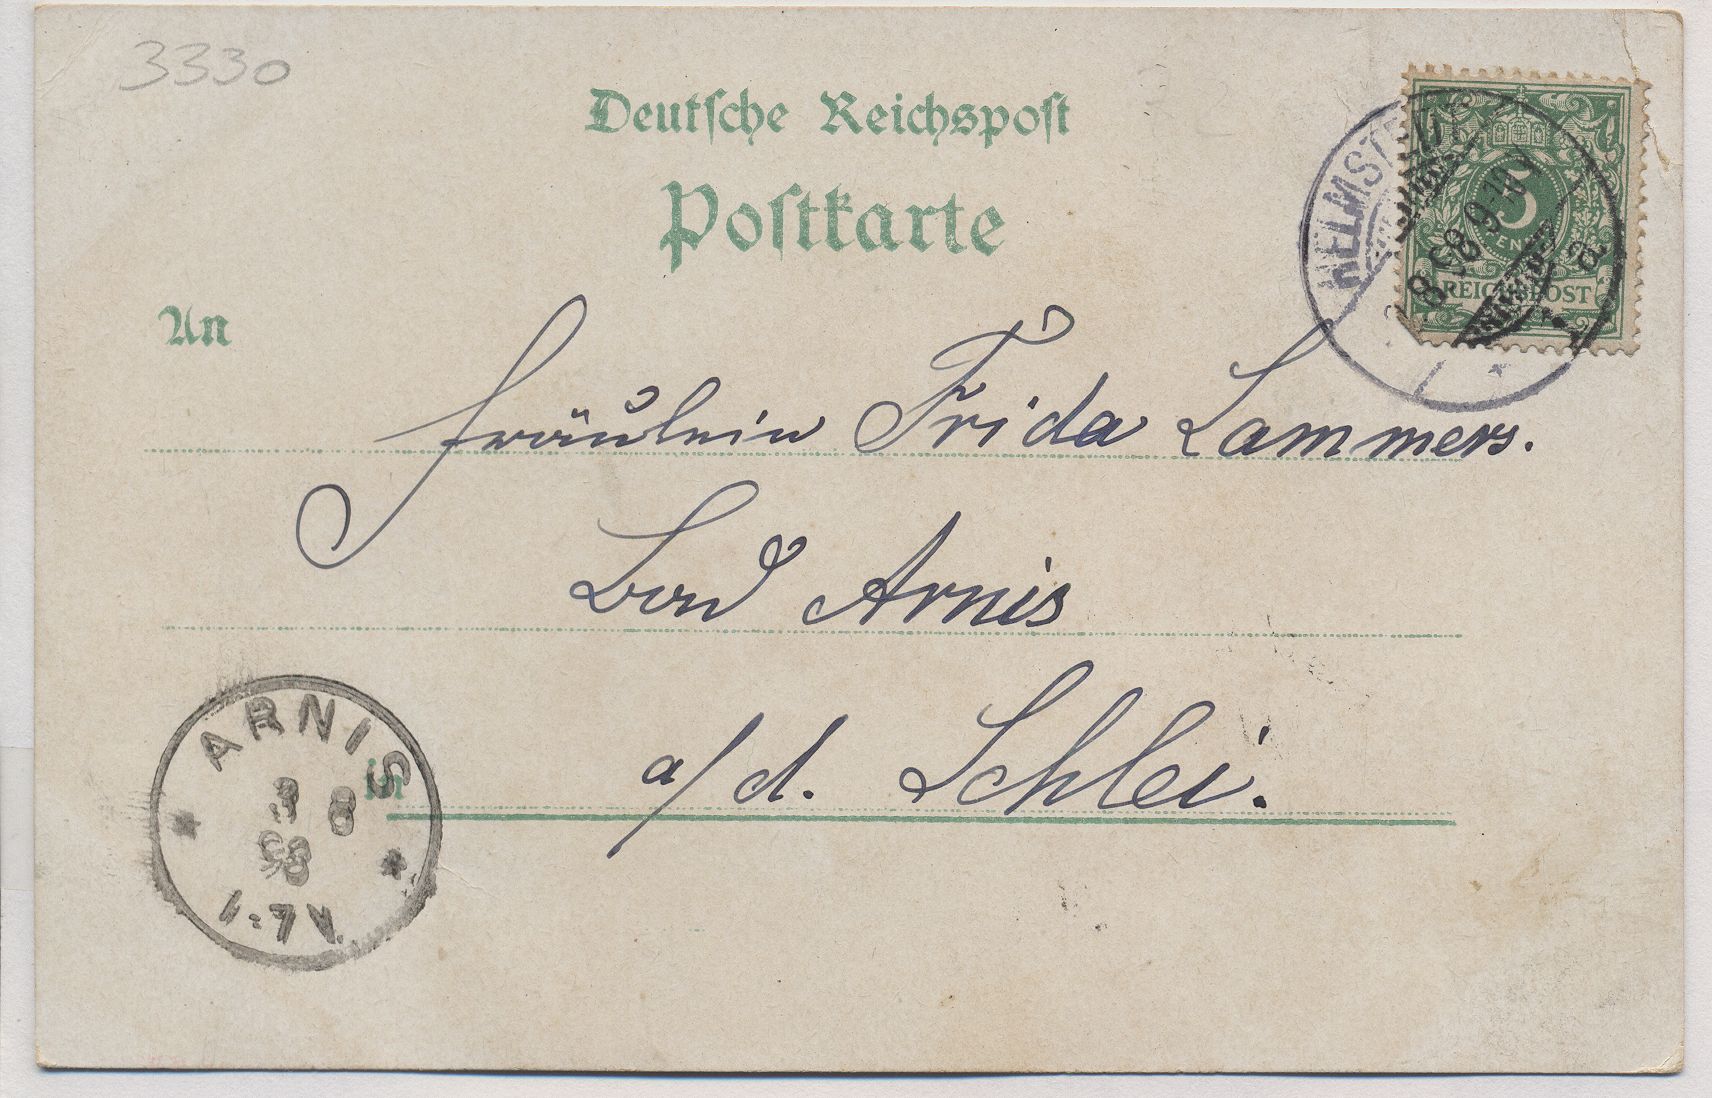 3330
Deutsche Reichspost
Postkarte
An
HELMSTEDT
8 98 9-10 V
a
5
REICHSPOST
Fräulein Frida Lammers.
Bad Arnis
a/d. Schlei.
in
ARNIS
3 8
98
1-7 V.